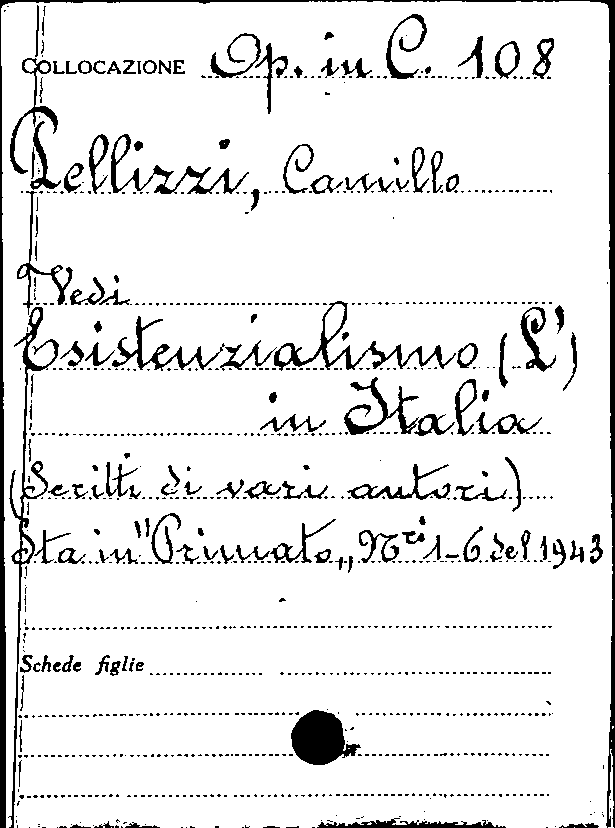 COLLOCAZIONE Op. in C. 108
Pellizzi, Camillo
Vedi
Esistenzialismo (L')
in Italia
(Scritti di vari autori)
Sta in "Primato„ Nri 1-6 del 1943
Schede figlie